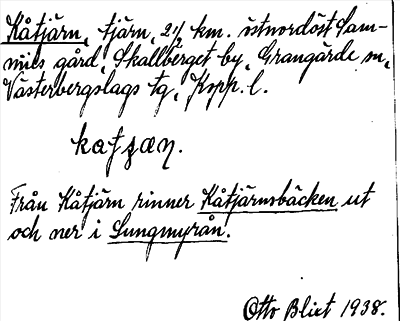 Kåtjärn, tjärn, 2 1/2 km. ostnordöst Sam-
mils gård, Skallberget by, Grangärde sn,
Västerbergslags tg, Kopp. l.
Från Kåtjärn rinner Kåtjärnsbäcken ut
och ner i Ljungmyrån.
Otto Blixt 1938.